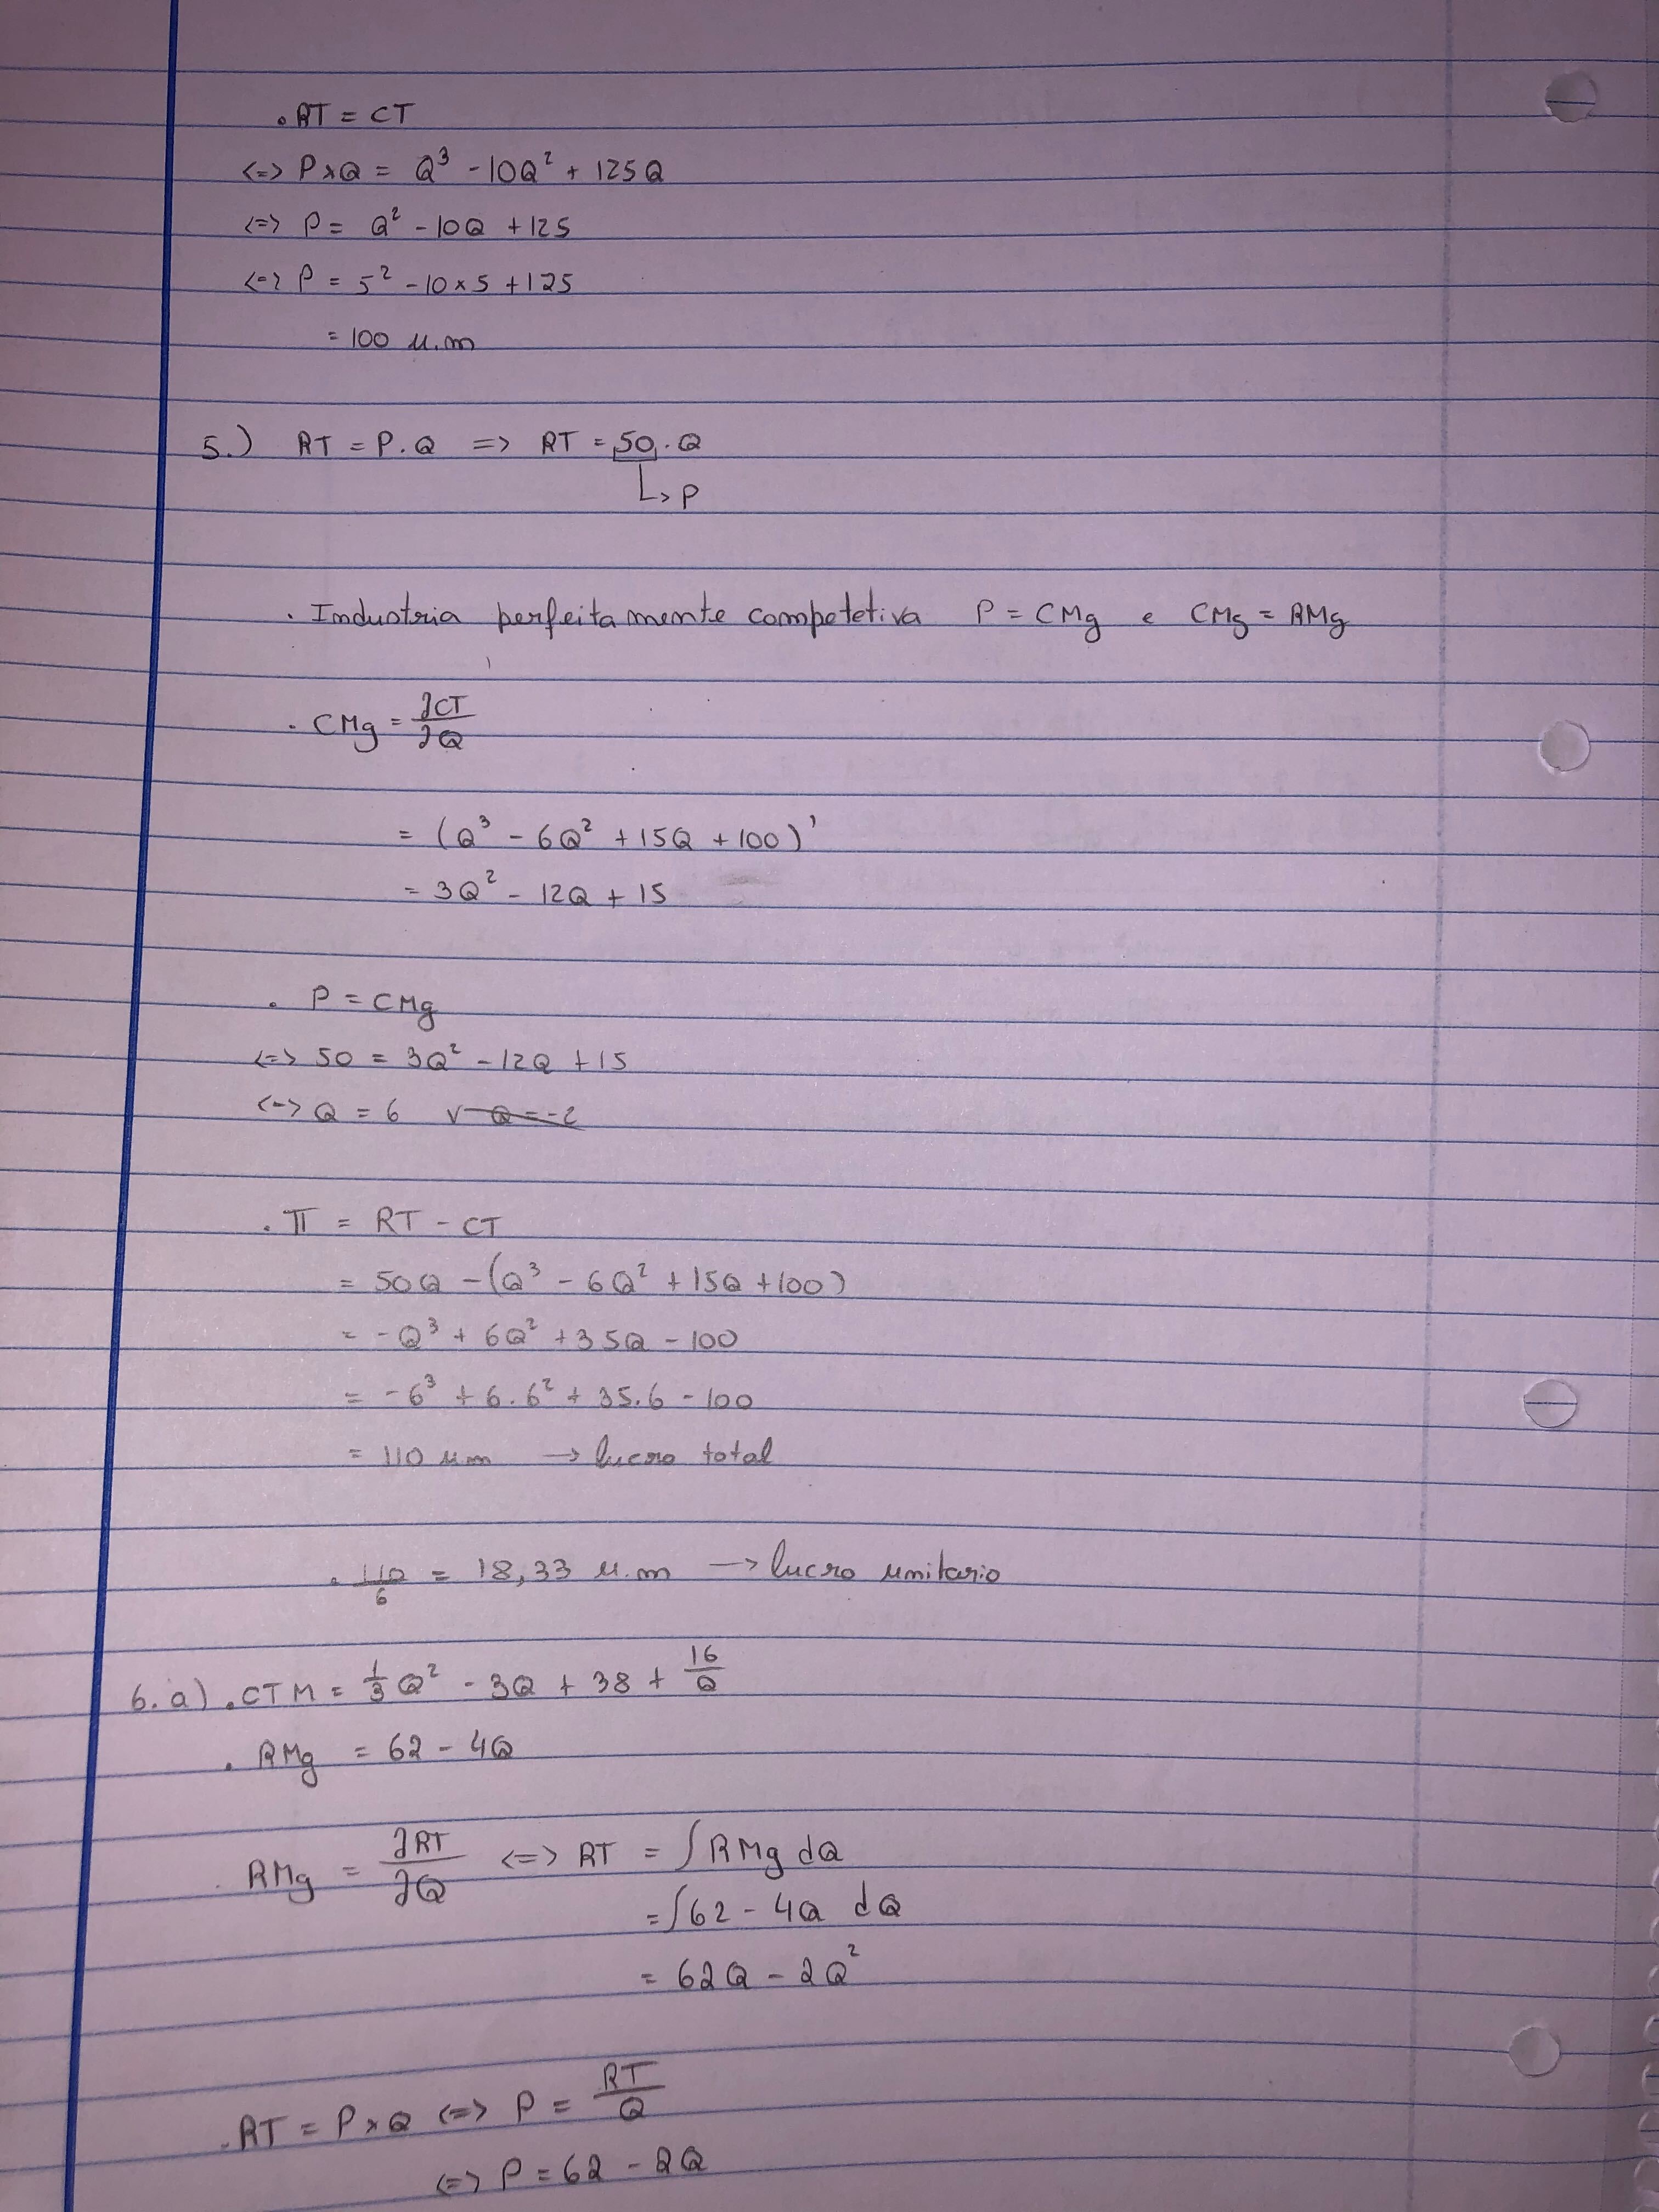 . RT = CT
<=> P x Q = Q³ - 10Q² + 125Q
<=> P = Q² - 10Q + 125
<=> P = 5² - 10 x 5 + 125
= 100 u.m
5.) RT = P . Q => RT = 50 . Q
↳ P
. Industria perfeitamente competetiva P = CMg e CMg = RMg
. CMg = ∂CT/∂Q
= (Q³ - 6Q² + 15Q + 100)'
= 3Q² - 12Q + 15
. P = CMg
<=> 50 = 3Q² - 12Q + 15
<=> Q = 6 v Q = -2
. π = RT - CT
= 50Q - (Q³ - 6Q² + 15Q + 100)
= - Q³ + 6Q² + 35Q - 100
= - 6³ + 6 . 6² + 35 . 6 - 100
= 110 um → lucro total
. 110/6 = 18,33 u.m → lucro unitario
6. a) . CTM = 1/3 Q² - 3Q + 38 + 16/Q
. RMg = 62 - 4Q
. RMg = ∂RT/∂Q <=> RT = ∫ RMg dQ
= ∫ 62 - 4Q dQ
= 62Q - 2Q²
. RT = P x Q <=> P = RT/Q
<=> P = 62 - 2Q